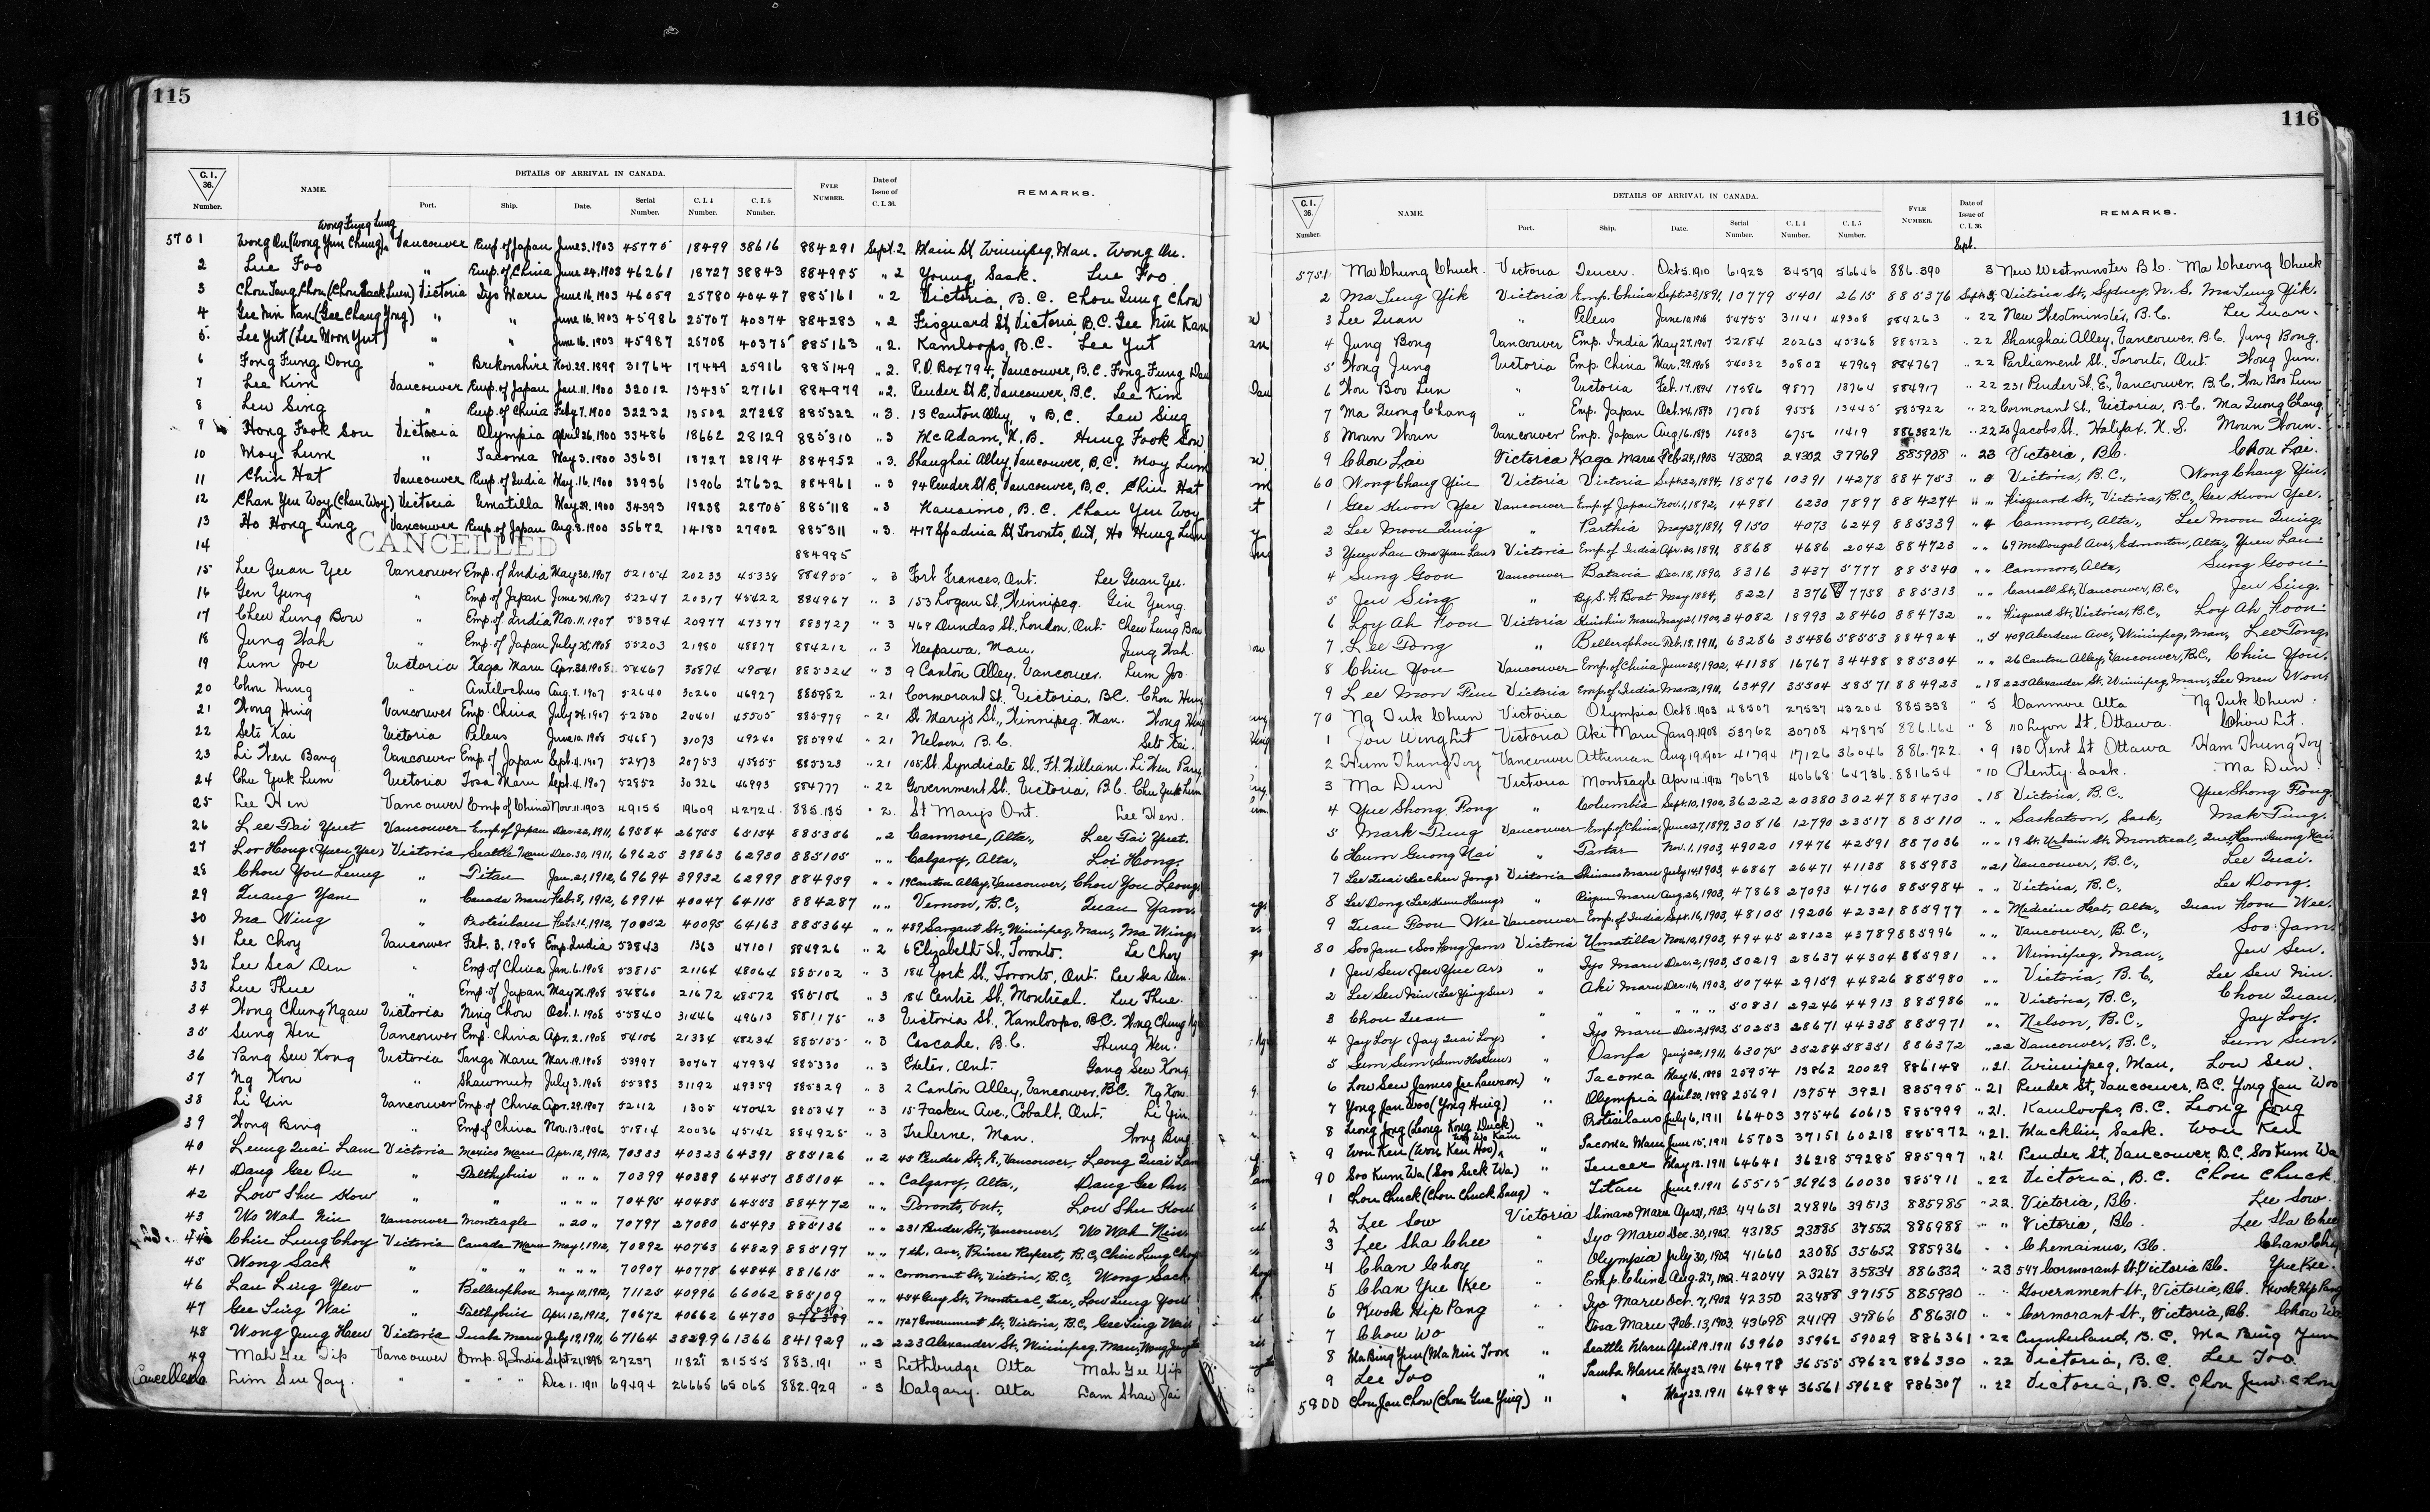 115
C.I. 36. Number. NAME. DETAILS OF ARRIVAL IN CANADA. Port. Ship. Date. Serial Number. C.I.4 Number. C.I.5 Number. FYLE NUMBER. Date of Issue of C.I.36. REMARKS.
Wong Fung Lung
5701 Wong On (Wong Yun Chung) Vancouver Emp. of Japan June 3, 1903 45775 18499 38616 884291 Sept. 2 Main St, Winnipeg, Man. Wong On.
2 Lue Foo " Emp. of China June 24, 1903 46261 18727 38843 884995 " 2 Young, Sask. Lue Foo
3 Chou Tang Chou (Chou Sack Luen) Victoria Iyo Maru June 16, 1903 46059 25780 40447 885161 " 2 Victoria, B.C. Chou Tung Chou
4 Gee Nin Kan (Gee Chang Yong) " " June 16, 1903 45986 25707 40374 884283 " 2 Fisguard St, Victoria, B.C. Gee Nin Kan
5 Lee Yut (Lee Moon Yut) " " June 16, 1903 45987 25708 40375 885163 " 2. Kamloops, B.C. Lee Yut
6 Fong Fung Dong " Brekonshire Nov. 29, 1899 31764 17449 25916 885149 " 2. P.O. Box 794, Vancouver, B.C. Fong Fung Dau
7 Lee Kim Vancouver Emp. of Japan Jan. 11, 1900 32012 13435 27161 884979 " 2. Pender St E, Vancouver, B.C. Lee Kim
8 Lew Sing " Emp. of China Feby 7, 1900 32232 13502 27228 885322 " 3. 13 Canton Alley, " B.C. Lew Sing
9 Hong Fook Sou Victoria Olympia April 26, 1900 33486 18662 28129 885310 " 3 McAdam, N.B. Hung Fook Sou
10 Moy Lum " Tacoma May 3, 1900 33631 18727 28194 884952 " 3. Shanghai Alley, Vancouver, B.C. Moy Lum
11 Chin Hat Vancouver Emp. of India May 16, 1900 33936 13906 27632 884961 " 3 94 Pender St E, Vancouver, B.C. Chin Hat
12 Chan Yen Woy (Chan Woy) Victoria Umatilla May 29, 1900 34393 19238 28705 885118 " 3 Nanaimo, B.C. Chan Yen Woy
13 Ho Hong Lung Vancouver Emp. of Japan Aug. 8, 1900 35672 14180 27902 885311 " 3. 417 Spadina St, Toronto, Ont, Ho Hung Lum
CANCELLED
14 884985
15 Lee Guan Yee Vancouver Emp. of India May 30, 1907 52154 20233 45338 884955 " 3 Fort Frances, Ont. Lee Guan Yee.
16 Gen Yung " Emp. of Japan June 24, 1907 52247 20317 45422 884967 " 3 153 Logan St., Winnipeg. Gin Yung
17 Chew Lung Bow " Emp. of India Nov. 11, 1907 53394 20977 47377 883727 " 3 469 Dundas St., London, Ont. Chew Lung Bow
18 Jung Wah " Emp. of Japan July 25, 1908 55203 21980 48877 884212 " 3 Neepawa, Man. Jung Wah
19 Lum Joe Victoria Kaga Maru Apr. 30, 1908 54467 30874 49041 885324 " 3 9 Canton Alley, Vancouver. Lum Joo
20 Chou Hung " Antilochus Aug. 7, 1907 52640 30260 46927 885982 " 21 Cormorant St. Victoria, B.C. Chou Hung
21 Wong Hing Vancouver Emp. China July 24, 1907 52500 20401 45505 885979 " 21 St. Mary's St., Winnipeg, Man. Wong Hing
22 Seto Kai Victoria Peleus June 10, 1908 54687 31073 49240 885994 " 21 Nelson, B.C. Seto Kai.
23 Li Wen Bang Vancouver Emp. of Japan Sept. 4, 1907 52973 20753 45855 885323 " 21 105 St. Syndicate St. Ft. William. Li Wen Pang
24 Chu Yuk Lum Victoria Tosa Maru Sept. 4, 1907 52852 30326 46993 884777 " 22 Government St. Victoria, B.C. Chu Yuk Lum
25 Lee Hen Vancouver Emp of China Nov. 11, 1903 49155 19609 42724 885.185 " 2. St Marys Ont. Lee Hen.
26 Lee Tai Yuet Vancouver Emp. of Japan Dec. 22, 1911, 69584 26755 65154 885356 " 2 Canmore, Alta., Lee Tai Yuet.
27 Lor Hong (Yuen Yee) Victoria Seattle Maru Dec. 30, 1911, 69625 39863 62930 885105 " " Calgary, Alta., Loi Hong.
28 Chou You Leung " Titan Jan. 21, 1912, 69694 39932 62999 884959 " " 19 Canton Alley, Vancouver, Chou You Leong
29 Quang Yam " Canada Maru Feb. 8, 1912, 69914 40047 64115 884287 " " Vernon, B.C., Quan Yam.
30 Ma Wing " Protesilaus Feb. 14, 1912, 70052 40095 64163 885364 " " 489 Sargant St., Winnipeg, Man., Ma Wing
31 Lee Choy Vancouver Feb. 3, 1908 Emp. India 53843 1363 47101 884926 " 2 6 Elizabeth St., Toronto. Le Choy
32 Lee Sea Den " Emp. of China Jan. 6, 1908 53815 21164 48064 885102 " 3 184 York St., Toronto, Ont. Lee Sea Den.
33 Lue Thue " Emp. of Japan May 26, 1908 54860 21672 48572 885106 " 3 84 Centre St., Montreal. Lue Thue.
34 Wong Chung Ngau Victoria Ning Chow Oct. 1, 1908 55840 31446 49613 881175 " 3 Victoria St., Kamloops, B.C. Wong Chung
35 Sung Hen Vancouver Emp. China Apr. 2, 1908 54106 21334 48234 885155 " 3 Cascade, B.C. Thung Hen.
36 Pang Sew Kong Victoria Tango Maru Mar. 19, 1908 53997 30767 47934 885330 " 3 Exeter, Ont. Gang Sew Kong
37 Ng Kow " Shawmut July 3, 1908 55383 31192 49359 885329 " 3 2 Canton Alley, Vancouver, B.C. Ng Kow.
38 Li Gin Vancouver Emp. of China Apr. 29, 1907 52112 1305 47042 885347 " 3 15 Fasken Ave., Cobalt, Ont. Li Gin
39 Wong Bing " Emp of China Nov. 13, 1906 51814 20036 45142 884925 " 3 Treherne, Man. Wong Bing
40 Leung Quai Lam Victoria Mexico Maru Apr. 12, 1912, 70333 40323 64391 885126 " 2 40 Pender St., E., Vancouver, Leong Quai Lam
41 Dang Gee On " Talthybius " " " 70399 40389 64457 885104 " " Calgary, Alta., Dang Gee On.
42 Low Shu Kow " " " " " 70495 40485 64553 884772 " " Toronto, Ont., Low Shu Kow
43 Wo Wah Nin Vancouver Monteagle " 20 " 70797 27080 65493 885136 " " 231 Pender St., Vancouver, Wo Wah Nin.
44 Chin Lung Choy Victoria Canada Maru May 1, 1912, 70892 40763 64829 885197 " " 7th. Ave., Prince Rupert, B.C., Chin Lung Choy
45 Wong Sack " " " " " 70907 40778 64844 881615 " " Cormorant St., Victoria, B.C., Wong Sack
46 Lau Ling Yew " Bellerophon May 10, 1912, 71125 40996 66062 885109 " " 484 Guy St., Montreal, Que., Low Lung Yow
47 Gee Sing Wai " Talthybius Apr. 12, 1912, 70672 40662 64730 " " 1727 Government St., Victoria, B.C., Gee Sing Wai
48 Wong Jung Hew Victoria Inaba Maru July 19, 1911, 67164 38299 61366 841929 " 2 223 Alexander St., Winnipeg, Man.,
49 Mah Gee Yip Vancouver Emp. of India Sept 21, 1898 27237 11827 21555 883.191 " 3 Lethbridge Alta Mah Gee Yip
Cancelled 50 Lim Sue Jay. " " Dec 1. 1911 69494 26665 65065 882.929 " 3 Calgary. Alta Lam Shaw Jai
116
C.I. 36. Number. NAME. DETAILS OF ARRIVAL IN CANADA. Port. Ship. Date. Serial Number. C.I.4 Number. C.I.5 Number. FYLE NUMBER. Date of Issue of C.I.36. REMARKS.
Sept.
5751 Ma Chung Chuck. Victoria Teucer. Oct 5. 1910 61923 34579 56646 886.390 3 New Westminster B.C. Ma Cheong Chuck
2 Ma Tung Yik Victoria Emp. China Sept. 23, 1891, 10779 5401 2615 885376 Sept. 3, Victoria St., Sydney, N.S. Ma Tung Yik.
3 Lee Quan " Peleus June 10, 1908 54755 31141 49308 884263 " 22 New Westminster, B.C. Lee Quan.
4 Jung Bong Vancouver Emp. India May 27, 1907 52184 20263 45368 885123 " 22 Shanghai Alley, Vancouver, B.C. Jung Bong.
5 Wong Jung Victoria Emp. China Mar. 29, 1908 54032 30802 47969 884767 " 22 Parliament St., Toronto, Ont. Wong Jun.
6 Won Boo Lun " Victoria Feb. 17, 1894 17586 9877 13764 884917 " 22 231 Pender St. E., Vancouver, B.C. Won Boo Lun
7 Ma Quong Chang " Emp. Japan Oct. 24, 1893 17008 9558 13445 885922 " 22 Cormorant St., Victoria, B.C. Ma Quong Chang.
8 Moun Woun Vancouver Emp. Japan Aug. 16, 1893 16803 6756 11419 886382½ " 22 20 Jacobs St., Halifax, N.S. Moun Woun.
9 Chou Lai Victoria Kaga Maru Feb 24, 1903 43802 24302 37969 885908 " 23 Victoria, B.C. Chou Lai.
60 Wong Chang Yin Victoria Victoria Sept. 22, 1894, 18576 10391 14278 884753 " Victoria, B.C., Wong Chang Yin.
1 Gee Kwon Yee Vancouver Emp. of Japan Nov. 1, 1892, 14981 6230 7897 884274 " " Fisguard St., Victoria, B.C., Gee Kwon Yee.
2 Lee Moon Quing " Parthia May 27, 1891, 9150 4073 6249 885339 " 4 Canmore, Alta., Lee Moon Quing.
3 Yuen Lau (Ma Yuen Lau) Victoria Emp. of India Apr. 28, 1891, 8868 4686 2042 884723 " " 69 McDougal Ave., Edmonton, Alta., Yuen Lau.
4 Sung Goon Vancouver Batavia Dec. 18, 1890, 8316 3437 5777 885340 " " Canmore, Alta., Sung Goon.
5 Jew Sing " By S.S. Boat May 1884, 8221 3376 7758 885313 " " Carrall St., Vancouver, B.C., Jew Sing.
6 Loy Ah Koon Victoria Kinshiu Maru May 21, 1900, 34082 18993 28460 884732 " " Fisguard St., Victoria, B.C., Loy Ah Koon.
7 Lee Tong " Bellerophon Feb. 18, 1911, 63286 35486 58553 884924 " 5 409 Aberdeen Ave., Winnipeg, Man., Lee Tong
8 Chin You Vancouver Emp. of China June 25, 1902, 41188 16767 34488 885304 " " 26 Canton Alley, Vancouver, B.C., Chin You.
9 Lee Mon Fun Victoria Emp. of India Mar. 2, 1911, 63491 35504 58571 884923 " 18 225 Alexander St., Winnipeg, Man., Lee Men Won
70 Ng Duk Chun Victoria Olympia Oct 8. 1903 48507 27537 43204 885338 " 5 Canmore Alta Ng Duk Chun.
1 Jou Wing Lit Victoria Aki Maru Jan 9. 1908 53762 30708 47875 886.664 " 8 110 Lyon St. Ottawa. Chou Lit.
2 Hum Thung Toy Vancouver Athenian Aug 19. 1902 41794 17126 36046 886.722. " 9 130 Kent St Ottawa Ham Thung Toy
3 Ma Dun Victoria Monteagle Apr 14. 1912 70678 40668 64736. 881654 " 10 Plenty. Sask. Ma Dun.
4 Yue Shong Fong " Columbia Sept. 10, 1900, 36222 20380 30247 884730 " 18 Victoria, B.C., Yue Shong Fong.
5 Mark Tung Vancouver Emp. of China, June 27, 1899, 30816 12790 23517 885110 " " Saskatoon, Sask., Mak Tung.
6 Hum Guong Nai " Tartar Nov. 1, 1903, 49020 19476 42591 887036 " " 19 St. Urbain St., Montreal, Que.,
7 Lee Quai (Lee Chen Jong) Victoria Shinano Maru July 14, 1903, 46867 26471 41138 885983 " 21 Vancouver, B.C., Lee Quai.
8 Lee Dong (Lee Kum Heung) " Riojun Maru Aug. 26, 1903, 47868 27093 41760 885984 " " Victoria, B.C., Lee Dong.
9 Quan Foon Wee Vancouver Emp. of India Sept. 16, 1903, 48105 19206 42321 885977 " " Medicine Hat, Alta., Quan Koon Wee.
80 Soo Jam (Soo Hong Jam) Victoria Umatilla Nov. 10, 1903, 49445 28122 43789 885996 " " Vancouver, B.C., Soo Jam.
1 Jew Sen (Jew Yue Ar) " Iyo Maru Dec. 2, 1903, 50219 28637 44304 885981 " " Winnipeg, Man., Jew Sen.
2 Lee Sew Nin (Lee Ying Sue) " Aki Maru Dec. 16, 1903, 50744 29159 44826 885980 " " Victoria, B.C., Lee Sew Nin.
3 Chou Quan " " " " " 50831 29246 44913 885986 " " Victoria, B.C., Chou Quan.
4 Jay Loy (Jay Quai Loy) " Iyo Maru Dec. 2, 1903, 50253 28671 44338 885971 " " Nelson, B.C., Jay Loy.
5 Sum Sum (Sum Hor Sun) " Oanfa Jan. 22, 1911, 63075 35284 58351 886372 " 22 Vancouver, B.C., Lum Sun.
6 Low Sew (James Lee Lawson) " Tacoma May 16, 1898 25954 13862 20029 886148 " 21. Winnipeg, Man, Low Sew.
7 Yong Jan Woo (Yong Hing) " Olympia April 20, 1898 25691 13754 3921 885995 " 21 Pender St, Vancouver, B.C. Yong Jan Woo
8 Leong Jong (Leong Kong Duck) " Protesilaus July 6, 1911 66403 37546 60613 885999 " 21. Kamloops, B.C. Leong Jong
9 Won Ken (Won Ken Hoo) " Tacoma Maru June 15, 1911 65703 37151 60218 885972 " 21. Macklin, Sask. Won Ken
90 Soo Kum Wa (Soo Sack Wa) " Teucer May 12, 1911 64641 36218 59285 885997 " 21 Pender St, Vancouver, B.C. Soo Kum Wa
1 Chou Chuck (Chou Chuck Sang) " Titan June 9, 1911 65515 36963 60030 885911 " 22 Victoria, B.C. Chou Chuck
2 Lee Sow Victoria Shinano Maru Apr 21, 1903, 44631 24846 39513 885985 " 22. Victoria, B.C. Lee Sow.
3 Lee Sha Chee " Iyo Maru Dec. 30, 1902 43185 23885 37552 885988 " " Victoria, B.C. Lee Sha Chee
4 Chan Choy " Olympia July 30, 1902 41660 23085 35652 885936 " " Chemainus, B.C. Chan Choy
5 Chan Yue Kee " Emp. China Aug. 27, 1902 42044 23267 35834 886332 " 23 547 Cormorant St Victoria B.C. Yue Kee.
6 Kwok Hip Pang " Iyo Maru Oct. 7, 1902 42350 23488 37155 885930 " Government St., Victoria, B.C. Kwok Hip Pang
7 Chou Wo " Tosa Maru Feb. 13, 1903 43698 24199 37866 886310 " " Cormorant St., Victoria, B.C. Chou Wo
8 Ma Bing Yun (Ma Nin Toon " Seattle Maru April 19, 1911 63960 35962 59029 886361 " 22 Cumberland, B.C. Ma Bing Yun
9 Lee Too " Tamba Maru May 23, 1911 64978 36555 59622 886330 " 22 Victoria, B.C. Lee Too.
5800 Chou Jan Chou (Chou Gue Ying) " " May 23, 1911 64984 36561 59628 886307 " 22 Victoria, B.C. Chou Juw Chou